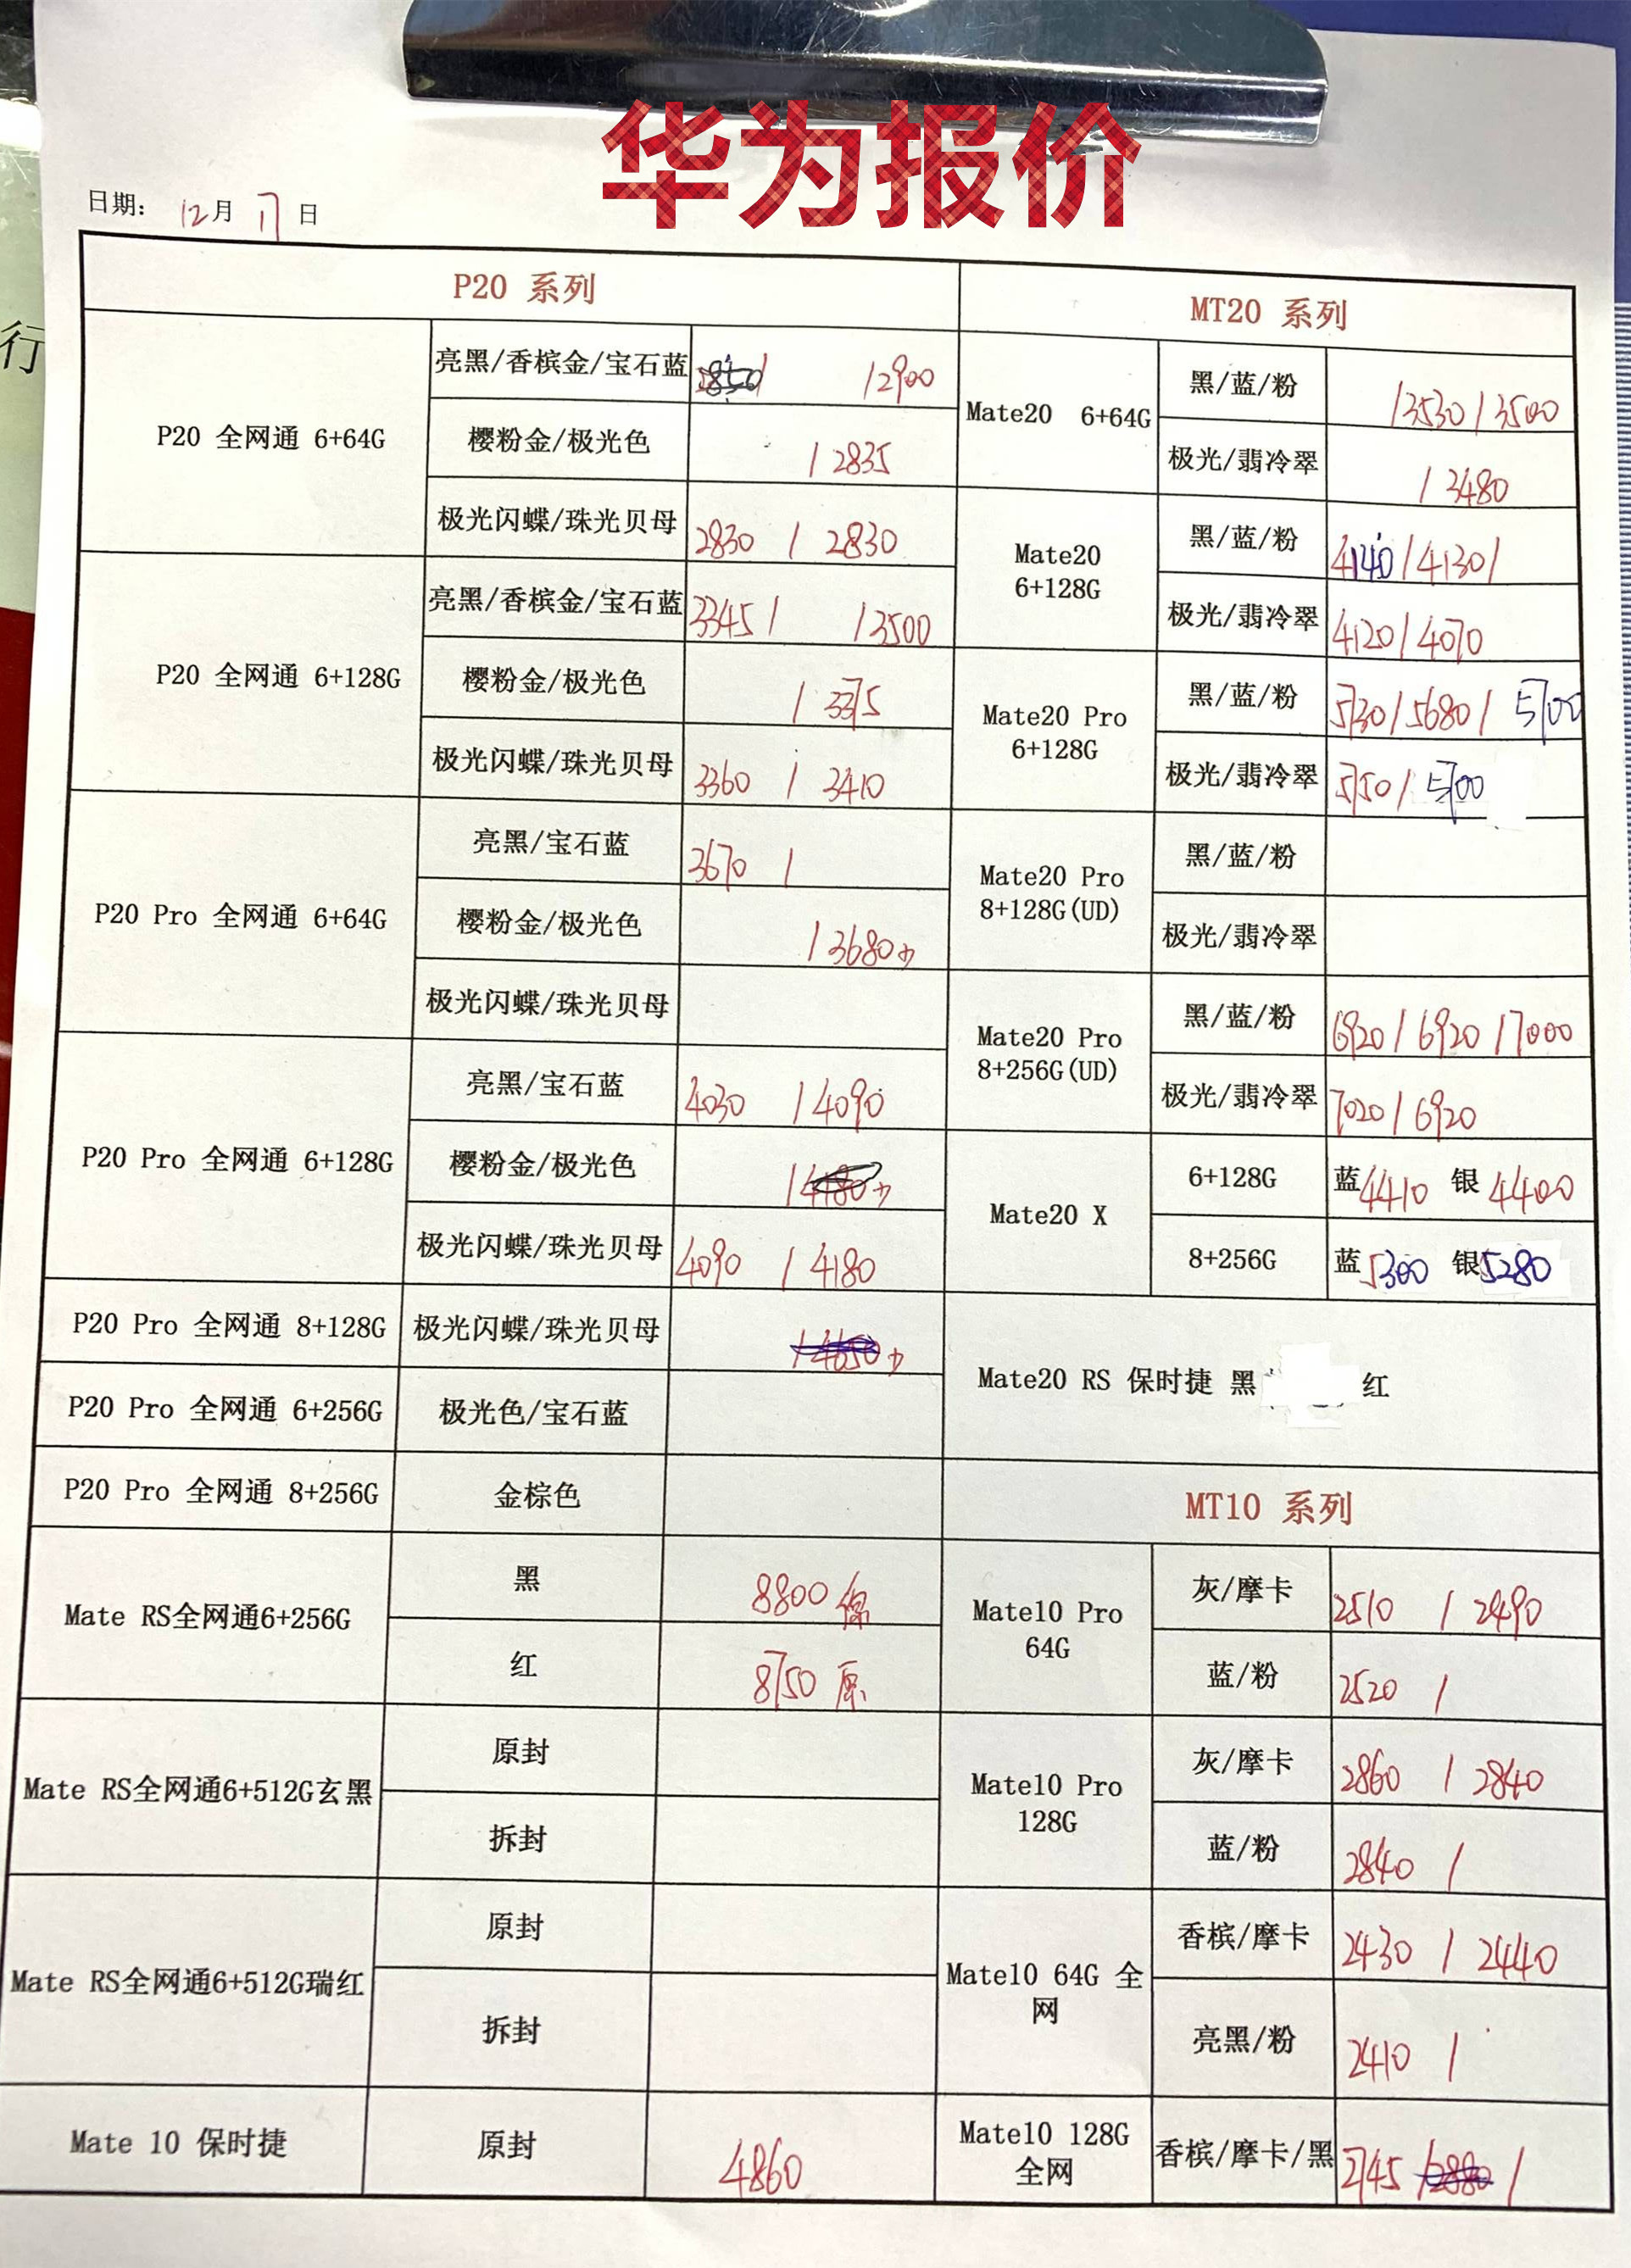 华为报价
行
日期: 12月 17 日
P20 系列
P20 全网通 6+64G
亮黑/香槟金/宝石蓝 / /2900
樱粉金/极光色 / 2835
极光闪蝶/珠光贝母 2830 / 2830
P20 全网通 6+128G
亮黑/香槟金/宝石蓝 3345 / /3500
樱粉金/极光色 / 3375
极光闪蝶/珠光贝母 3360 / 3410
P20 Pro 全网通 6+64G
亮黑/宝石蓝 3670 /
樱粉金/极光色 / 3680
极光闪蝶/珠光贝母
P20 Pro 全网通 6+128G
亮黑/宝石蓝 4030 / 4090
樱粉金/极光色 /
极光闪蝶/珠光贝母 4090 / 4180
P20 Pro 全网通 8+128G 极光闪蝶/珠光贝母
P20 Pro 全网通 6+256G 极光色/宝石蓝
P20 Pro 全网通 8+256G 金棕色
Mate RS全网通6+256G
黑 8800
红 8750 原
Mate RS全网通6+512G玄黑
原封
拆封
Mate RS全网通6+512G瑞红
原封
拆封
Mate 10 保时捷 原封 4860
MT20 系列
Mate20 6+64G
黑/蓝/粉 /3530 / 3500
极光/翡冷翠 / 3480
Mate20
6+128G
黑/蓝/粉 4140 / 4130 /
极光/翡冷翠 4120 / 4070
Mate20 Pro
6+128G
黑/蓝/粉 5730 / 5680 / 5700
极光/翡冷翠 5750 / 5700
Mate20 Pro
8+128G(UD)
黑/蓝/粉
极光/翡冷翠
Mate20 Pro
8+256G(UD)
黑/蓝/粉 6920 / 6920 / 7000
极光/翡冷翠 7020 / 6920
Mate20 X
6+128G 蓝 4410 银 4400
8+256G 蓝 5300 银 5280
Mate20 RS 保时捷 黑 红
MT10 系列
Mate10 Pro
64G
灰/摩卡 2510 / 2490
蓝/粉 2520 /
Mate10 Pro
128G
灰/摩卡 2860 / 2840
蓝/粉 2840 /
Mate10 64G 全
网
香槟/摩卡 2430 / 2440
亮黑/粉 2410 /
Mate10 128G
全网
香槟/摩卡/黑 2745 /